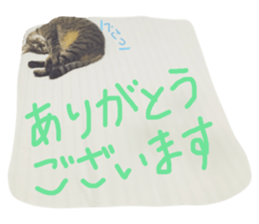 ぺこっ
ありがとう
ございます